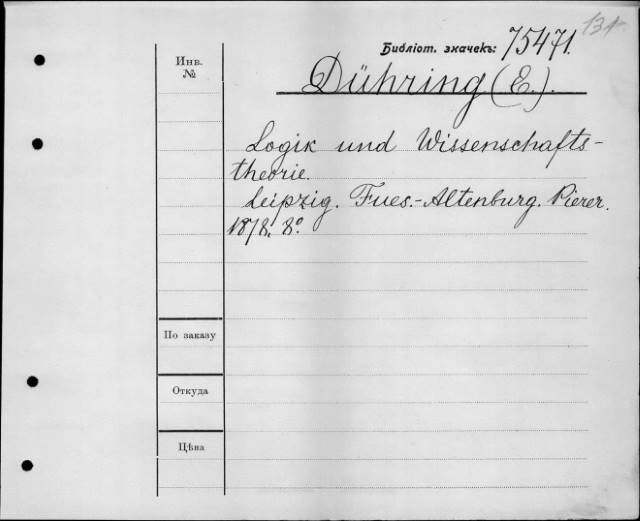 131
Библіот. значекъ: 75471.
Инв.
№
Dühring (E.).
Logik und Wissenschafts-
theorie.
Leipzig. Fues.-Altenburg. Pierer.
1878. 8°.
По заказу
Откуда
Цѣна